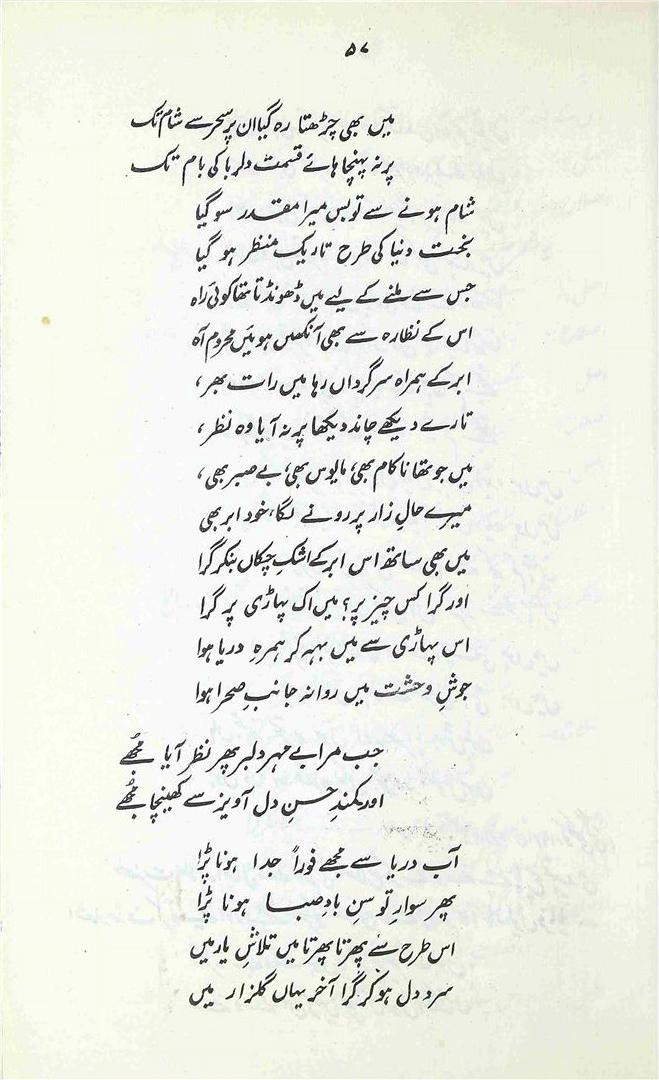 ۵۷
میں بھی چڑھتا رہ گیا ان پر سحر سے شام تک
پر نہ پہنچا ہائے قسمت دلربا کی بام تک
شام ہونے سے تو بس میرا مقدر سو گیا
بخت دنیا کی طرح تاریک منظر ہو گیا
جس سے ملنے کے لیے میں ڈھونڈتا تھا کوئی راہ
اس کے نظارہ سے بھی آنکھیں ہوئیں محروم آہ
ابر کے ہمراہ سرگرداں رہا میں رات بھر،
تارے دیکھے چاند دیکھا پر نہ آیا وہ نظر،
میں جو تھا ناکام بھی، مایوس بھی، بے صبر بھی،
میرے حالِ زار پر رونے لگا، خود ابر بھی
میں بھی ساتھ اس ابر کے اشکِ چکاں بنکر گرا
اور گرا کس چیز پر؟ میں اک پہاڑی پر گرا
اس پہاڑی سے میں بہہ کر ہمرہِ دریا ہوا
جوشِ وحشت میں روانہ جانبِ صحرا ہوا
جب مرا بے مہر دلبر پھر نظر آیا مجھے
اور کمندِ حسنِ دل آویز سے کھینچا مجھے
آب دریا سے مجھے فوراً جدا ہونا پڑا
پھر سوارِ توسنِ بادِ صبا ہونا پڑا
اس طرح سے پھرتا پھرتا میں تلاشِ یار میں
سرد دل ہو کر گرا آخر یہاں گلزار میں